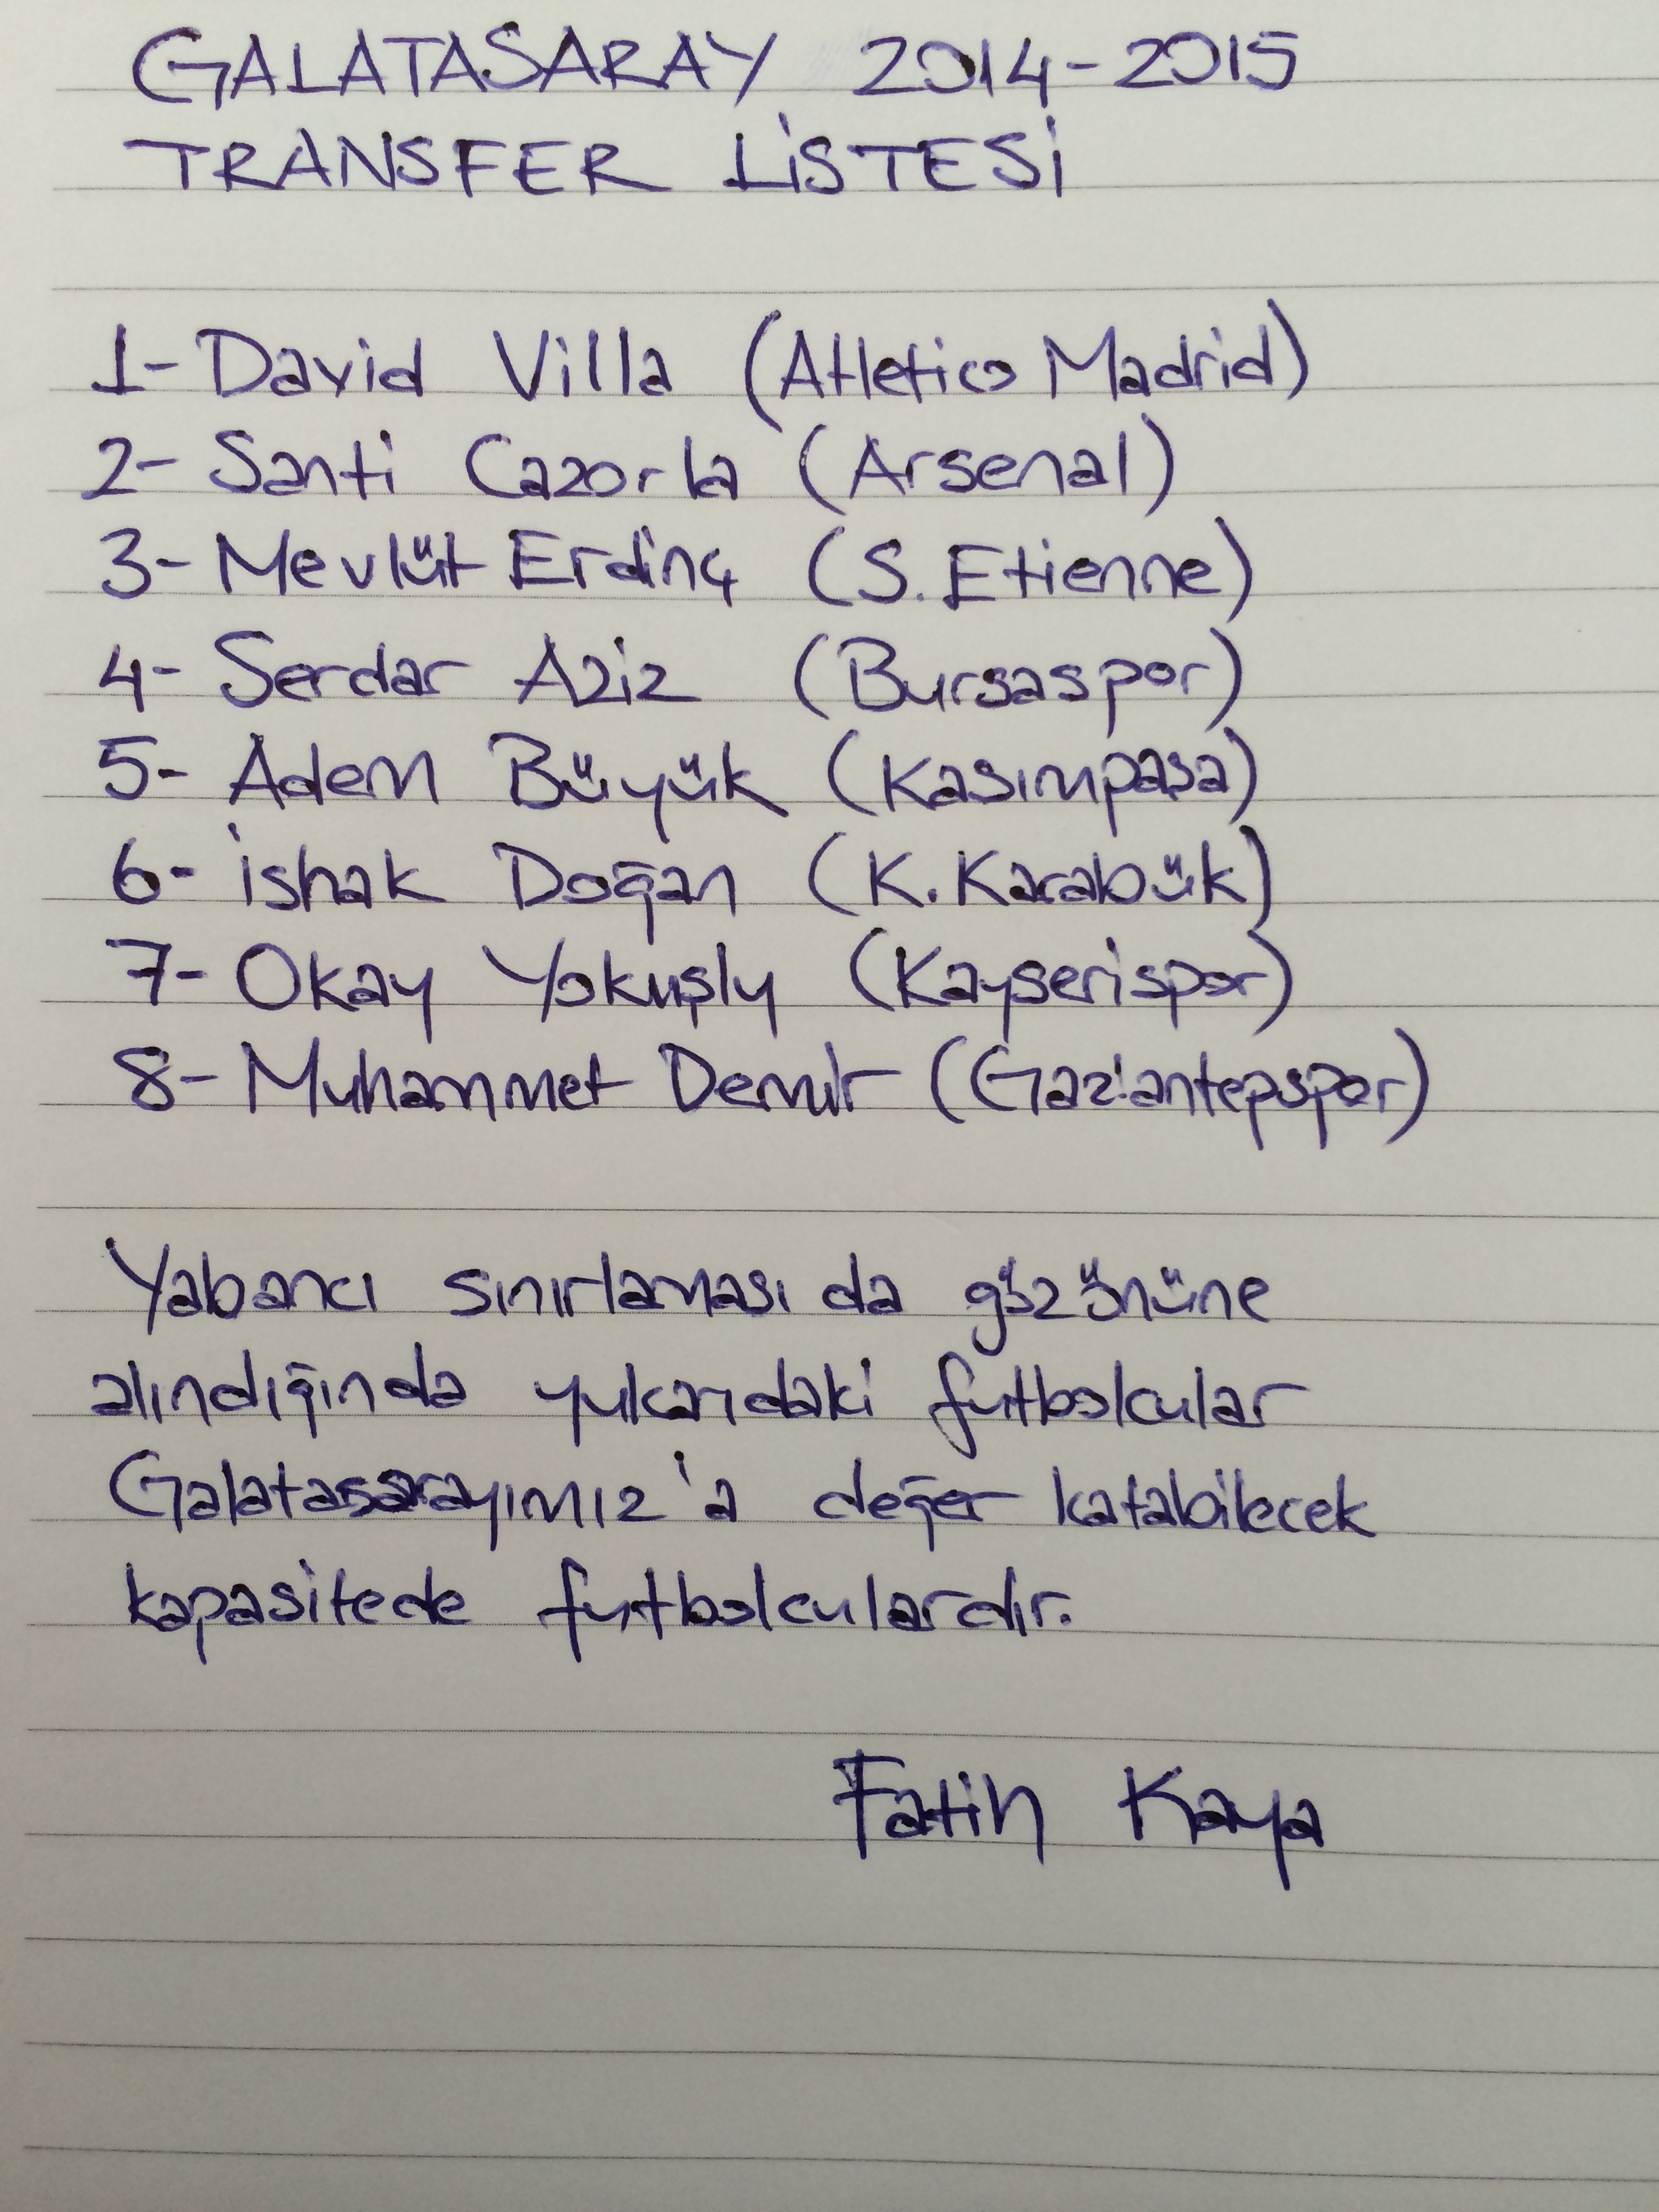 GALATASARAY 2014-2015
TRANSFER LİSTESİ
1- David Villa (Atletico Madrid)
2- Santi Cazorla (Arsenal)
3- Mevlüt Erdinç (S. Etienne)
4- Serdar Aziz (Bursaspor)
5- Adem Büyük (Kasımpaşa)
6- İshak Doğan (K. Karabük)
7- Okay Yokuşlu (Kayserispor)
8- Muhammet Demir (Gaziantepspor)
Yabancı sınırlaması da gözönüne
alındığında yukarıdaki futbolcular
Galatasarayımız'a değer katabilecek
kapasitede futbolculardır.
Fatih Kaya